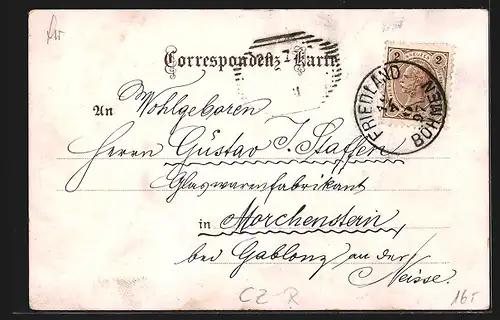 Correspondenz-Karte
2 2
FRIEDLAND
BÖHMEN
An Wohlgeboren
Herrn Gustav J. Staffen
Glaswarenfabrikant
in Morchenstern
bei Gablonz an der
Neisse.
CZ-R